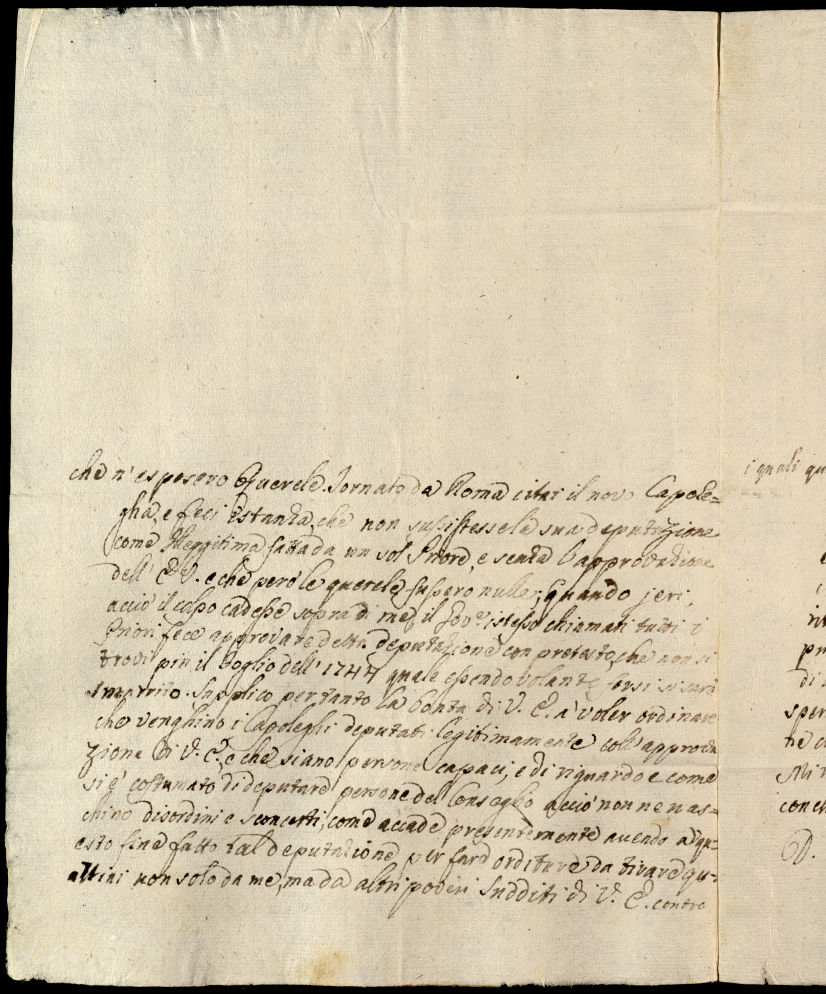 che n'esposero Querele. Tornato da Roma citai il novo Capole=
gha, e feci istanza, che non sussistesse la sua deputazione
come Illeggitima fatta da un sol Priore, e senza l'approvazione
dell' E. V. e che però le querele fussero nulle; quando jeri,
acciò il colpo cadesse sopra di me, il Gov.re istesso chiamati tutti i
Priori fece approvare detta deputazione con pretesto, che non si
trovi più il Foglio dell' 1744 quale essendo volante forsi si sarà
smarrito. Supplico pertanto la bontà di V. E. a voler ordinare
che venghino i Capoleghi deputati legitimamente coll' approva
zione di V. E., e che siano persone capaci, e di riguardo e come
si è costumato di deputare persone del Conseglio acciò non ne nas=
chino disordini e sconcerti, come accade presentemente avendo a qu=
esto fine fatto tal deputazione per fare orditure da tirare qu=
attrini non solo da me, ma da altri poveri sudditi di V. E. contro
i quali qu
D.